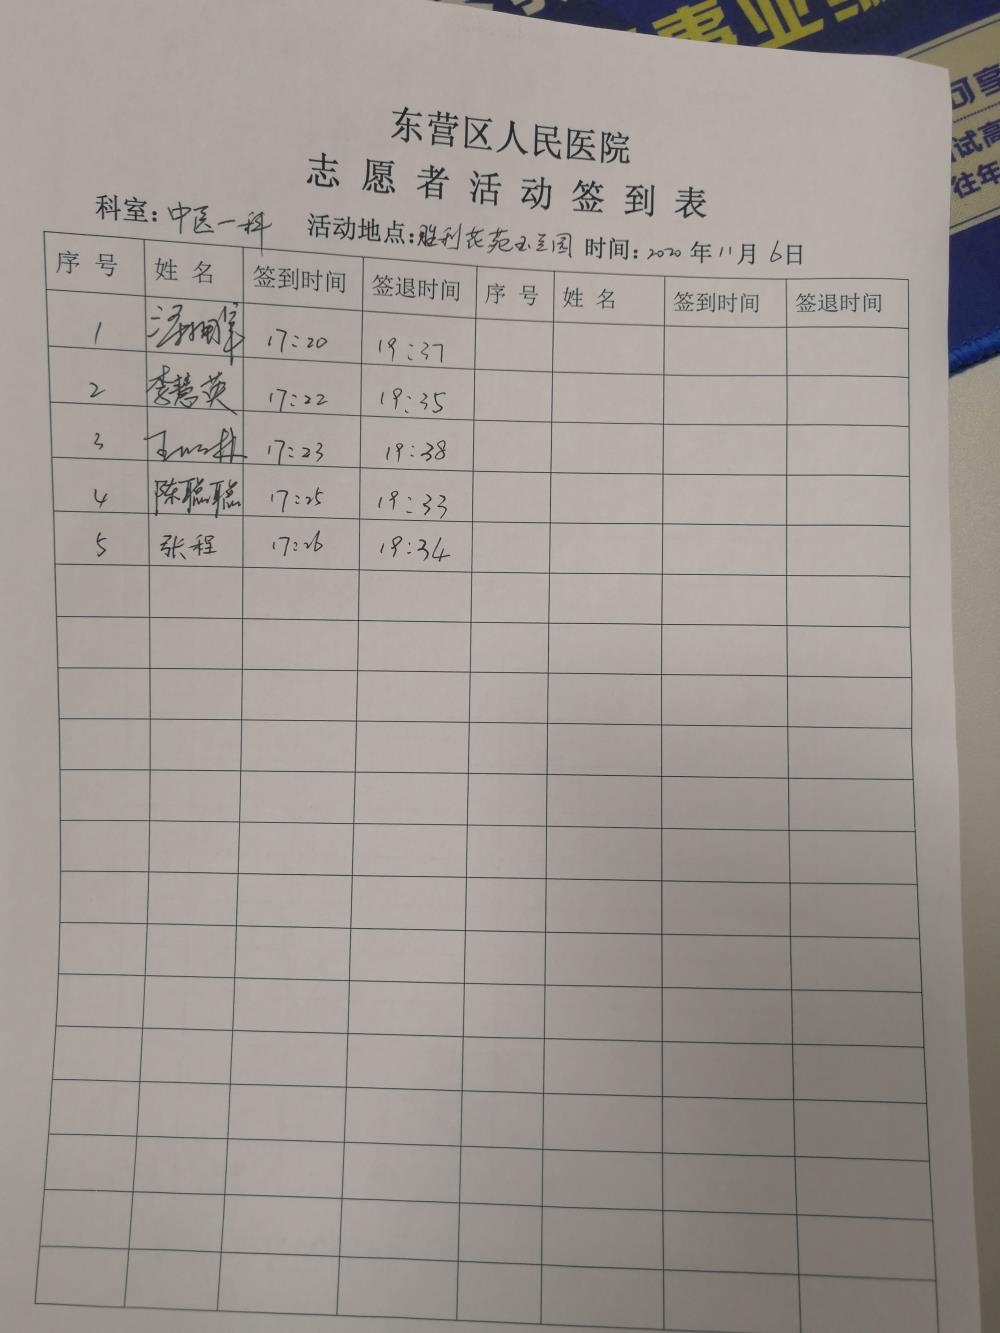 事业编
可享
试高
往年
东营区人民医院
志愿者活动签到表
科室:中医一科 活动地点:胜利花苑玉兰园 时间:2020年11月6日
序号 姓名 签到时间 签退时间 序号 姓名 签到时间 签退时间
1 17:20 19:37
2 李慧英 17:22 19:35
3 17:23 19:38
4 陈聪聪 17:25 19:33
5 张程 17:26 19:34